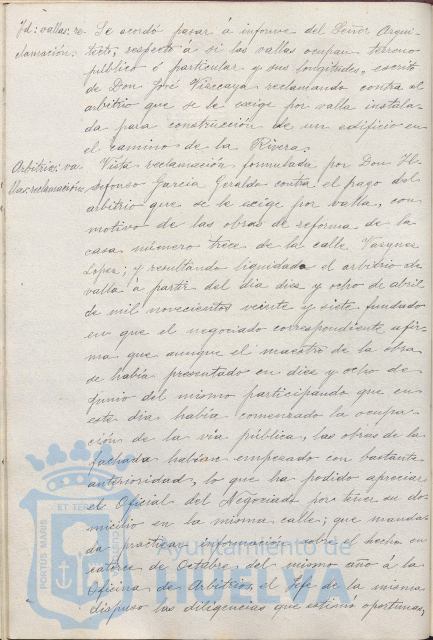 Id: vallas: re-
clamación:
Se acordó pasar á informe del Señor Arqui-
tecto, respecto á si las vallas ocupan terreno
público ó particular y sus longitudes, escrito
de Don José Vizcaya reclamando contra el
arbitrio que se le exige por valla instala-
da para construcción de un edificio en
el camino de la Rivera.
Arbitrio: va-
llas: reclamación:
Vista reclamación formulada por Don Il-
defonso García Geraldo contra el pago del
arbitrio que se le exige por valla, con
motivo de las obras de reforma de la
casa número trece de la calle Vazquez
Lopez; y resultando liquidado el arbitrio de
valla á partir del dia diez y ocho de abril
de mil novecientos veinte y siete fundado
en que el negociado correspondiente afir-
ma que aunque el maestro de la obra
se había presentado en diez y ocho de
Junio del mismo participando que en
este dia había comenzado la ocupa-
ción de la via pública, las obras de la
fachada habian empezado con bastante
anterioridad, lo que ha podido apreciar
el Oficial del Negociado por tener su do-
micilio en la misma calle; que manda-
da practicar información sobre el hecho en
catorce de Octubre del mismo año á la
Oficina de Arbitrios, el Jefe de la misma
dispuso las diligencias que estimó oportunas,
PORTUS MARIS ET TERRÆ CUSTODIA
Ayuntamiento de
HUELVA